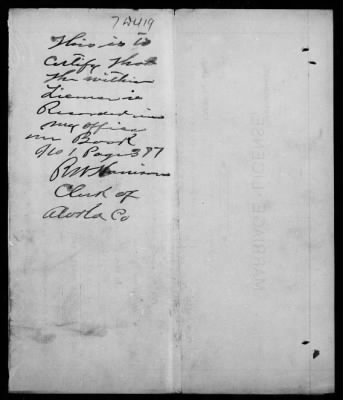 This is to
certify that
the within
License is
Recorded in
my office
in Book
No 1 Page 387
Clerk of
Co
MARRIAGE LICENSE